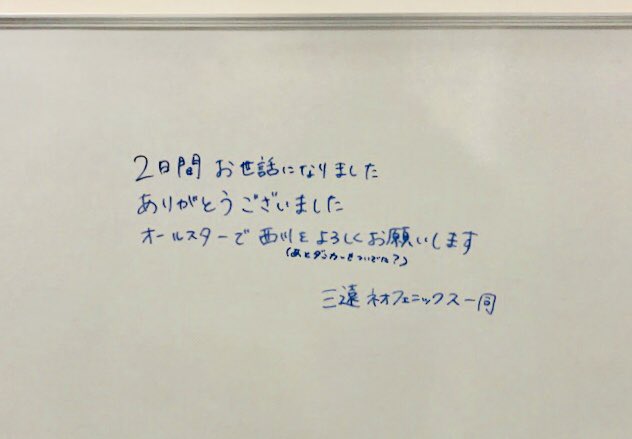 2日間 お世話になりました
ありがとうございました
オールスターで 西川をよろしくお願いします
(あとダンカーもついでに?)
三遠ネオフェニックス一同